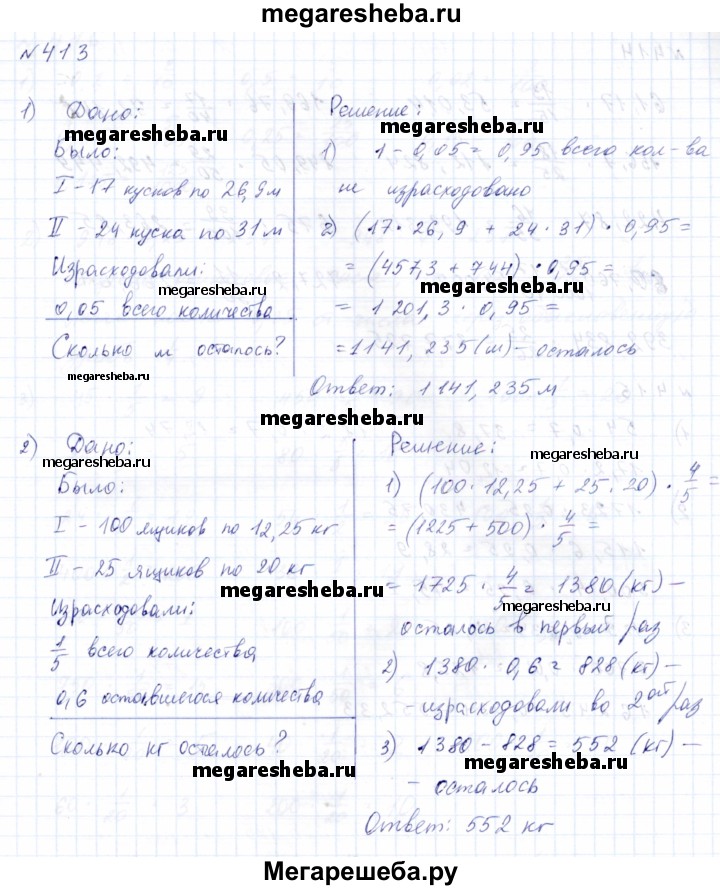 megaresheba.ru
№413
1) Дано:
megaresheba.ru
Было:
I - 17 кусков по 26,9 м
II - 24 куска по 31 м
Израсходовали:
megaresheba.ru
0,05 всего количества
Сколько м осталось?
megaresheba.ru
Решение:
megaresheba.ru
1) 1 - 0,05 = 0,95 всего кол-ва
не израсходовано
2) (17 · 26,9 + 24 · 31) · 0,95 =
= (457,3 + 744) · 0,95 =
megaresheba.ru
= 1 201,3 · 0,95 =
= 1141,235 (м) - осталось
Ответ: 1141,235 м
megaresheba.ru
2) Дано:
megaresheba.ru
Было:
I - 100 ящиков по 12,25 кг
II - 25 ящиков по 20 кг
Израсходовали:
1/5 всего количества
0,6 оставшегося количества
Сколько кг осталось?
megaresheba.ru
Решение:
megaresheba.ru
1) (100 · 12,25 + 25 · 20) · 4/5 =
= (1225 + 500) · 4/5 =
= 1725 · 4/5 = 1380 (кг) -
megaresheba.ru
осталось в первый раз
2) 1380 · 0,6 = 828 (кг) -
- израсходовали во 2ой раз
3) 1380 - 828 = 552 (кг) -
megaresheba.ru
- осталось
Ответ: 552 кг
Мегарешеба.ру